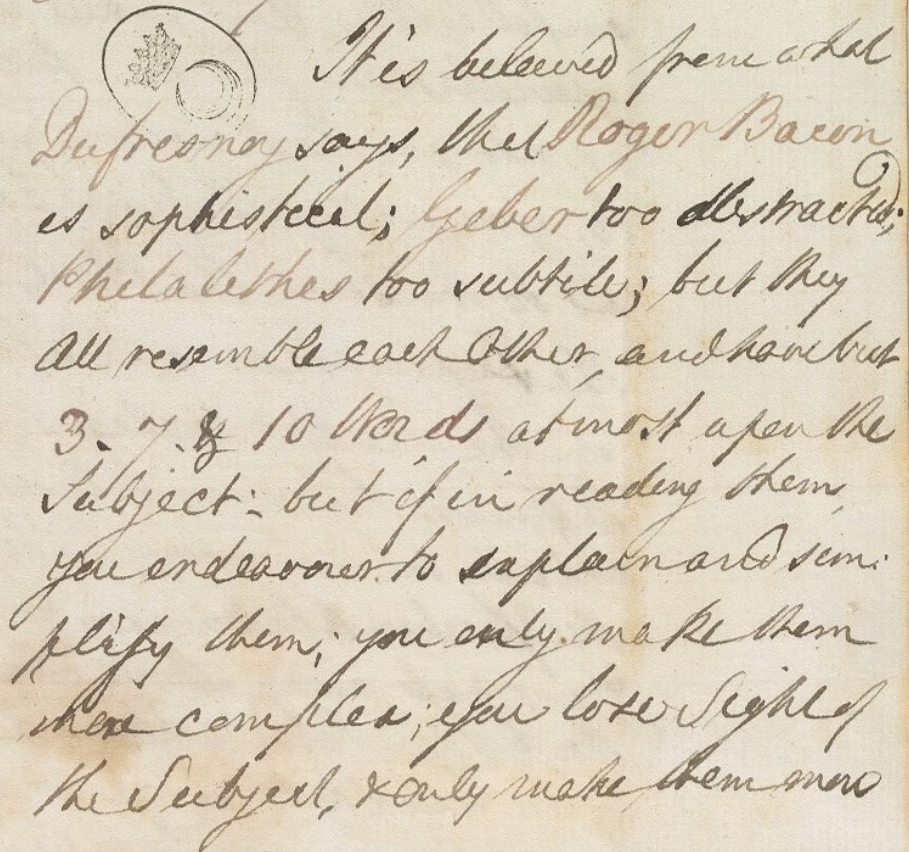 It is beleeved from what
Dufresnoy says, that Roger Bacon
is sophisticul; Geber too abstracted;
Philalethes too subtile; but they
All resemble each Other, and have but
3. 7. & 10 Words at most upon the
Subject: but if in reading them
you endeavour to explain and sim:
plify them; you only make them
more complex; you lose Sight of
the Subject, & only make them more